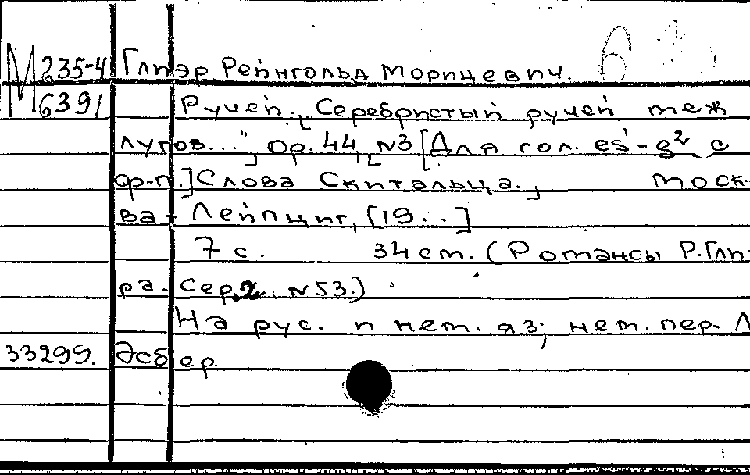 М 235-4 Глиэр Рейнгольд Морицевич.
6391 Ручей. ["Серебристый ручей меж
лугов..."] Op. 44, N3 [Для гол. es'-g² с
ф-п.] [Слова Скитальца.] Моск-
ва - Лейпциг, [19..]
7 с. 34 см. (Романсы Р. Глиэ-
ра. Сер. 2. N53.)
На рус. и нем. яз.; нем. пер. Л
33299. Эсбер